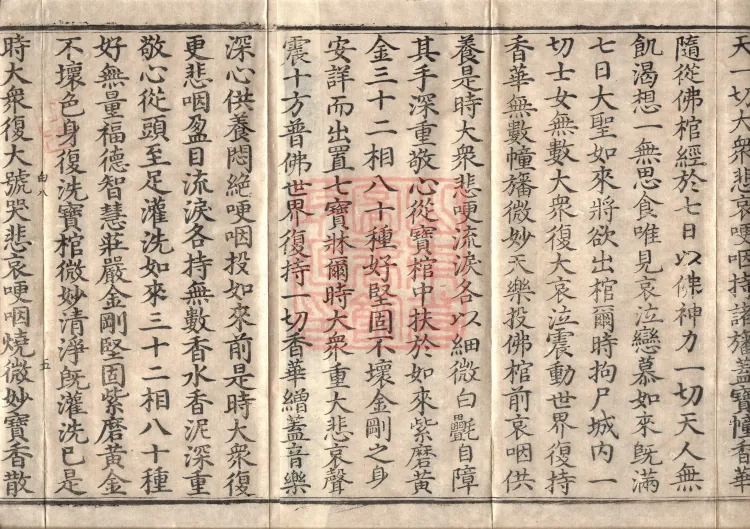 天一切大衆悲哀哽咽持諸旛蓋寶幢香華
隨從佛棺經於七日以佛神力一切天人無
飢渴想一無思食唯見哀泣戀慕如來既滿
七日大聖如來將欲出棺爾時拘尸城內一
切士女無數大衆復大哀泣震動世界復持
香華無數幢旛微妙天樂投佛棺前哀咽供
養是時大衆悲哽流淚各以細微白㲲自障
其手深重敬心從寶棺中扶於如來紫磨黃
金三十二相八十種好堅固不壞金剛之身
安詳而出置七寶牀爾時大衆重大悲哀聲
震十方普佛世界復持一切香華繒蓋音樂
深心供養悶絕哽咽投如來前是時大衆復
更悲咽盈目流淚各持無數香水香泥深重
敬心從頭至足灌洗如來三十二相八十種
好無量福德智慧莊嚴金剛堅固紫磨黃金
不壞色身復洗寶棺微妙清淨既灌洗已是
白八 五
時大衆復大號哭悲哀哽咽燒微妙寶香散